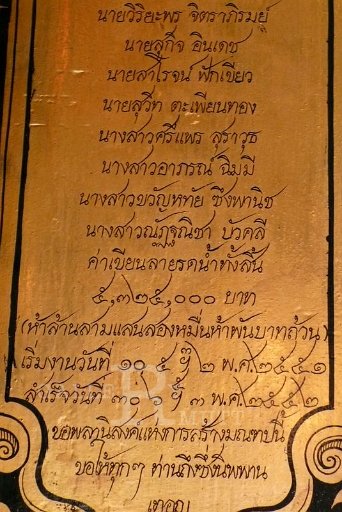 นายวิริยะพร จิตราภิรมย์
นายสุกิจ อินเดช
นายสาโรจน์ ฟักเขียว
นายสุวิท ตะเพียนทอง
นางสาวศรีแพร สุราวุธ
นางสาวอาภรณ์ ฉิมมี
นางสาวขวัญหทัย ซึงพานิช
นางสาวณัฏฐณิชา บัวคลี
ค่าเขียนลายรดน้ำทั้งสิ้น
๕,๓๒๕,๐๐๐ บาท
(ห้าล้านสามแสนสองหมื่นห้าพันบาทถ้วน)
เริ่มงานวันที่ ๑๐ ๕ ฯ ๒ พ.ศ.๒๕๕๑
สำเร็จวันที่ ๓๐ ๖ ฯ ๓ พ.ศ.๒๕๕๒
ขอพลานิสงค์แห่งการสร้างมณฑปนี้
ขอให้ทุกๆ ท่านถึงซึ่งนิพพาน
เทอญ